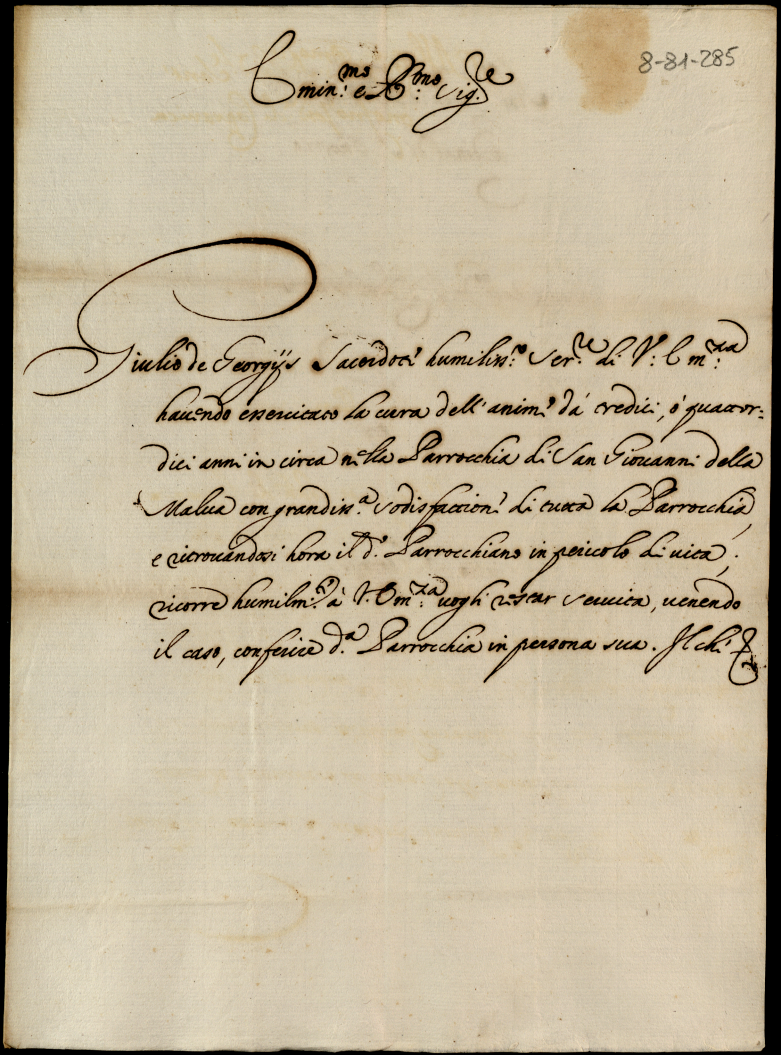 8-81-285
Emin.mo e R.mo Sig.re
Giulio de Georgijs Sacerdote humiliss.o Ser.re di V. Em.za
hauendo essercitato la cura dell'anime dà tredici, ò quattor=
dici anni in circa nella Parrocchia di San Giouanni della
Malua con grandiss.a sodisfattione di tutta la Parrocchia,
e ritrouandosi hora il d.o Parrocchiano in pericolo di uita;
ricorre humilm.te à V. Em.za uogli restar seruita, uenendo
il caso, conferire d.a Parrocchia in persona sua. Il che